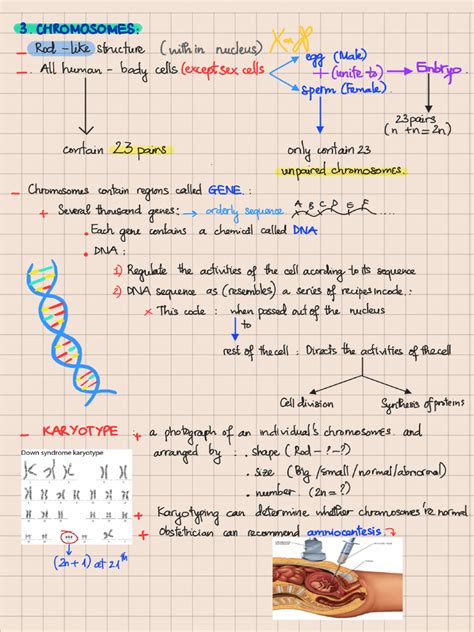 3. CHROMOSOMES:
- Rod-like structure (within nucleus)
- All human-body cells (except sex cells
egg (Male)
+ (unite to) → Embryo
sperm (Female)
23 pairs
(n + n = 2n)
contain 23 pairs
only contain 23
unpaired chromosomes.
- Chromosomes contain regions called GENE.:
+ Several thousand genes: → orderly sequence A B C D E F
• Each gene contains a chemical called DNA
• DNA:
1) Regulate the activities of the cell acording to its sequence
2) DNA sequence as (resembles) a series of recipes in code:
x This code: when passed out of the nucleus
to
rest of the cell: Directs the activities of the cell
Cell division
Synthesis of proteins
- KARYOTYPE + a photograph of an individual's chromosomes and
arranged by: . shape (Rod - ? - ?)
. size (Big/small/normal/abnormal)
. number (2n = ?)
Down syndrome karyotype
+ Karyotyping can determine whether chromosomes're normal
+ Obstetrician can recommend amniocentesis.
(2n+1) at 21th